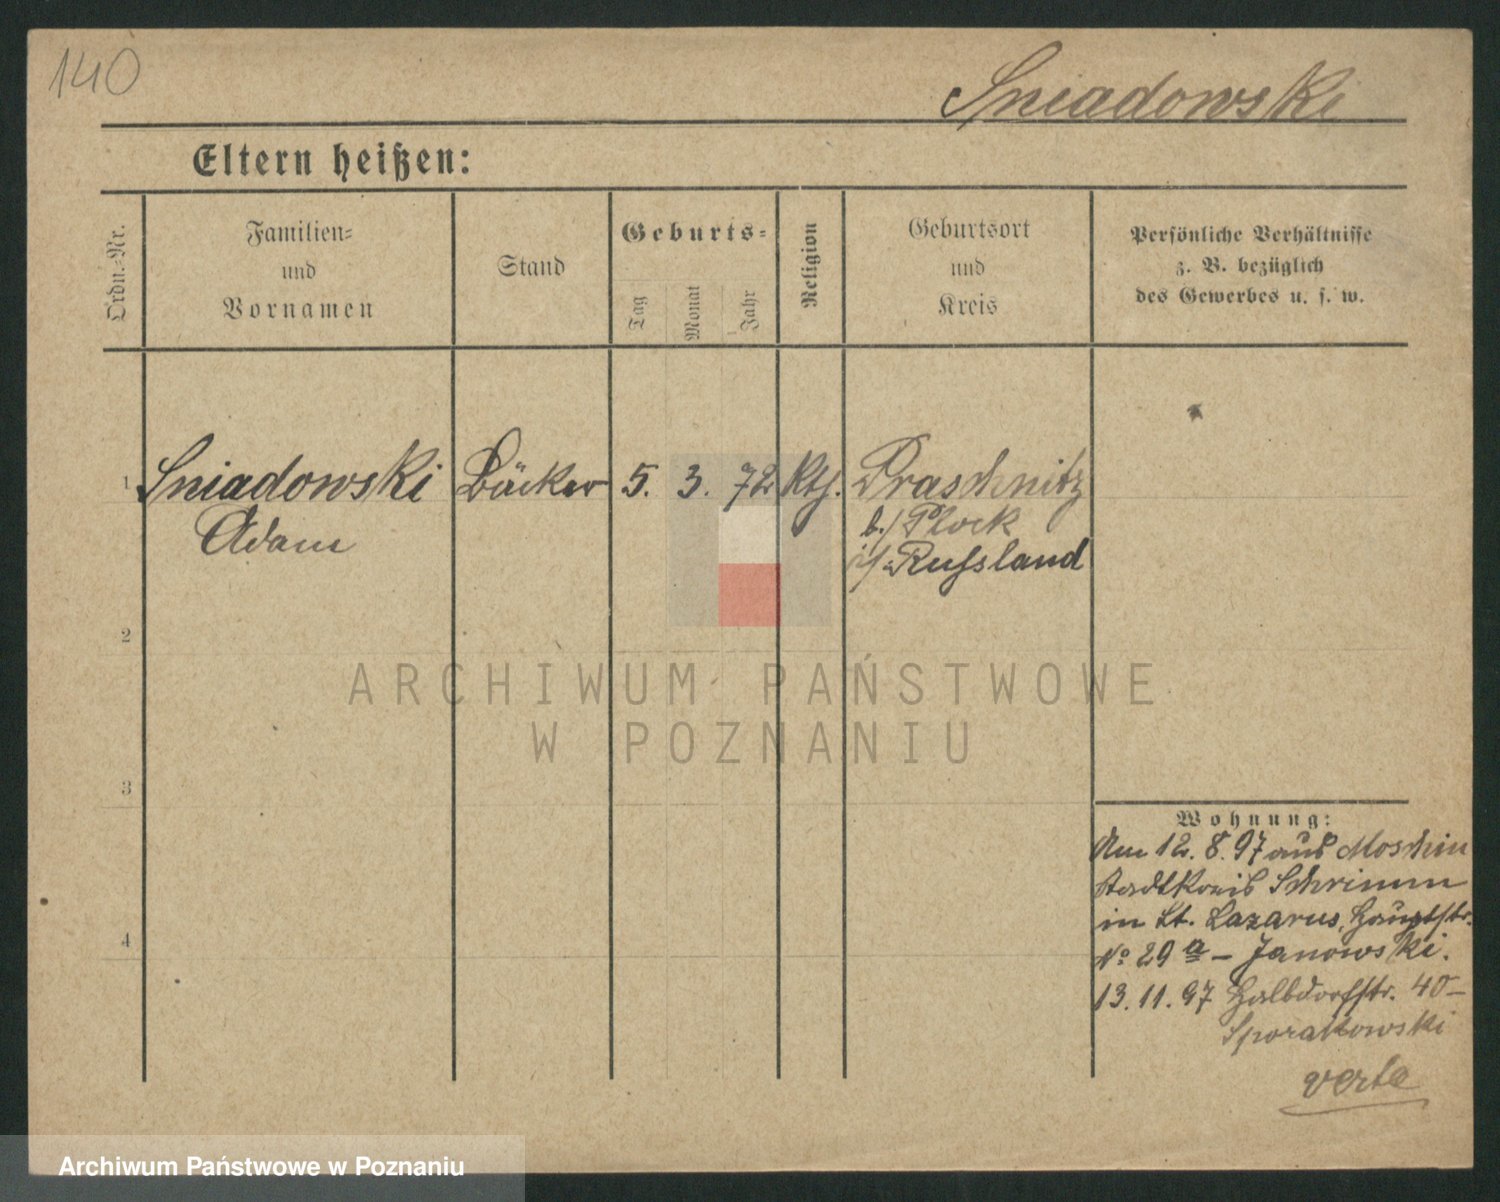 140
Sniadowski
Eltern heißen:
Ordn.-Nr.
Familien-
und
Vornamen
Stand
Geburts-
Tag
Monat
Jahr
Religion
Geburtsort
und
Kreis
Persönliche Verhältnisse
z. B. bezüglich
des Gewerbes u. s. w.
1
Sniadowski
Adam
Bäcker
5.
3.
72
Kth.
Praschnitz
b./Plock
i/Russland
2
3
4
Wohnung:
Am 12. 8. 97 aus Moschin
Stadtkreis Schrimm
in St. Lazarus, Hauptstr.
No 29 a – Janowski.
13. 11. 97 Halbdorfstr. 40 –
Sporakowski
verte
ARCHIWUM PAŃSTWOWE
W POZNANIU
Archiwum Państwowe w Poznaniu